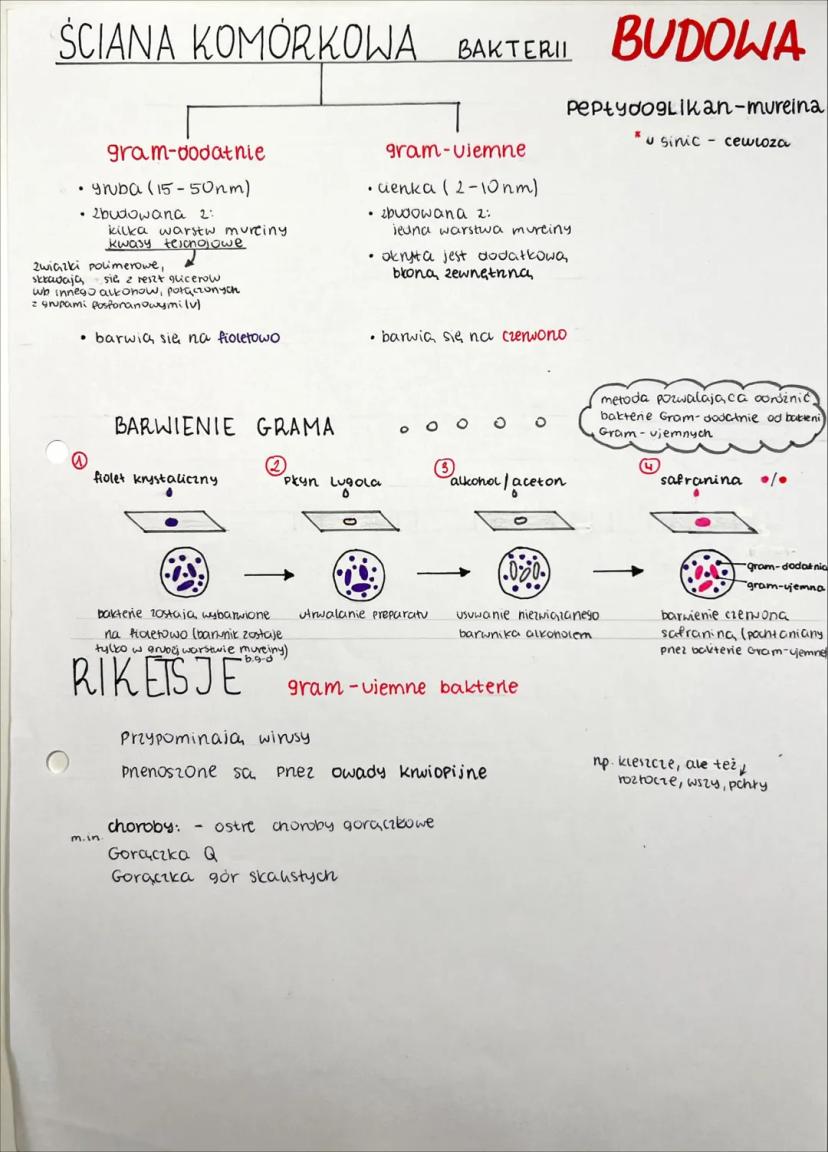 ŚCIANA KOMÓRKOWA BAKTERII
BUDOWA
peptydoglikan-mureina
* u sinic - celuloza
gram-dodatnie
• gruba (15-50nm)
• zbudowana z:
kilka warstw mureiny
kwasy tejchojowe
związki polimerowe,
składają się z reszt glicerolu
lub innego alkoholu, połączonych
z grupami fosforanowymi (V)
• barwią się na fioletowo
gram-ujemne
• cienka (2-10nm)
• zbudowana z:
jedna warstwa mureiny
• okryta jest dodatkową
błoną zewnętrzną
• barwią się na czerwono
BARWIENIE GRAMA
metoda pozwalająca odróżnić
bakterie Gram-dodatnie od bakterii
Gram-ujemnych
1
fiolet krystaliczny
bakterie zostają wybarwione
na fioletowo (barwnik zostaje
tylko w grubej warstwie mureiny)
2
płyn Lugola
utrwalanie preparatu
3
alkohol/aceton
usuwanie niezwiązanego
barwnika alkoholem
4
safranina /
gram-dodatnia
gram-ujemna
barwienie czerwoną
safraniną (pochłaniany
przez bakterie Gram-ujemne
RIKETSJE
gram-ujemne bakterie
Przypominają wirusy
przenoszone są przez owady krwiopijne
np. kleszcze, ale też
roztocze, wszy, pchły
m.in. choroby: - ostre choroby gorączkowe
Gorączka Q
Gorączka gór skalistych